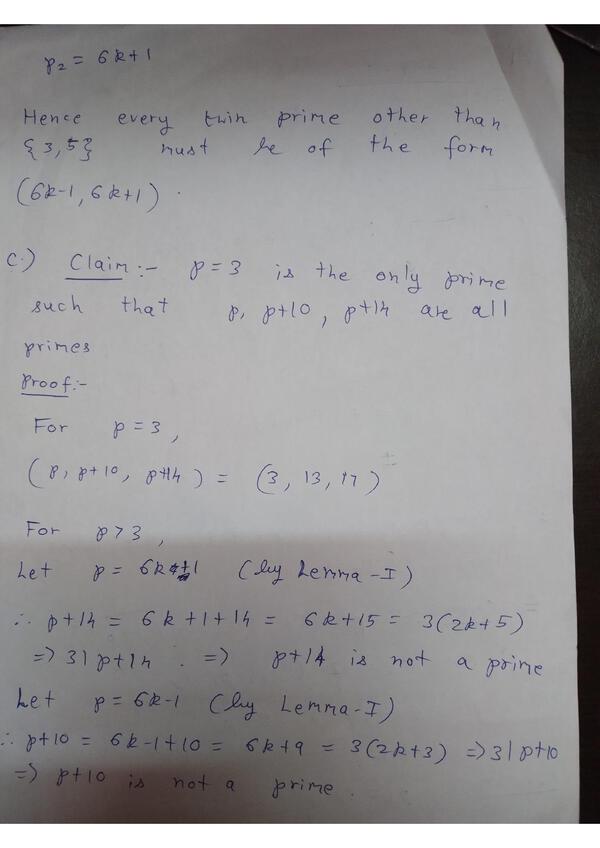 p₂ = 6k+1
Hence every twin prime other than
{3,5} must be of the form
(6k-1, 6k+1).
C.) Claim:- p=3 is the only prime
such that p, p+10, p+14 are all
primes
Proof:-
For p=3,
(p, p+10, p+14) = (3, 13, 17)
For p>3,
Let p = 6k+1 (by Lemma-I)
∴ p+14 = 6k+1+14 = 6k+15 = 3(2k+5)
=> 3|p+14 . => p+14 is not a prime
Let p=6k-1 (by Lemma-I)
∴ p+10 = 6k-1+10 = 6k+9 = 3(2k+3) => 3|p+10
=> p+10 is not a prime.